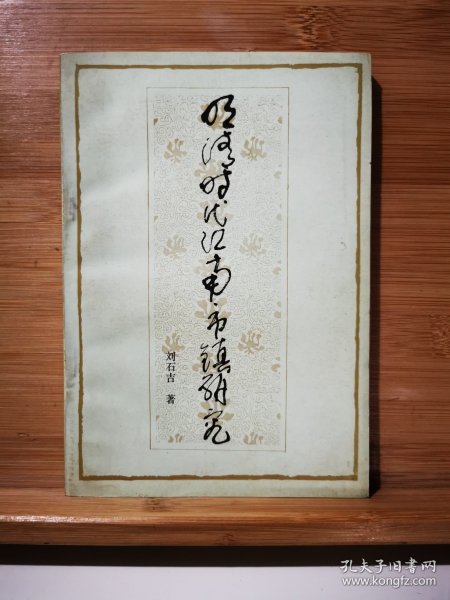 明清时代江南市镇研究
刘石吉 著
孔夫子旧书网
www.kongfz.com